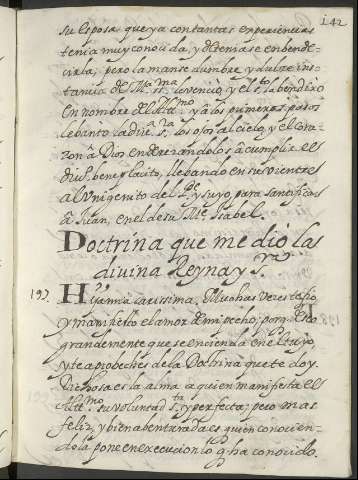 142
su esposa que ya con tantas experiencias
tenia muy conocida, y deteniase en bende-
cirla; pero la mansedumbre y dulce ins-
tancia de Mª. SSma. le venciò, y el Sto. la bendixo
en nombre del Alttmo. y à los primeros pasos
lebantò la divª. Srª. los ojos al cielo, y el Cora-
zon à Dios enderezandolos à cumplir el
divº. beneplacito, llebando en su vientre
al Unigenito del Pe. y suyo, para santificar
à Juan, en el de su Me. Isabel.
Doctrina que me dio la
divina Reyna y Srª.
197. Hija mia carissima, Muchas veces te fio,
y manifiesto el amor de mi pecho; porque deseo
grandemente que se encienda en el tuyo,
y te aprobeches de la Doctrina que te doy.
Dichosa es la alma a quien manifiesta el
Alttmo. su voluntad sta. y perfecta; pero mas
feliz, y bienabenturada es quien conocien-
dola pone en execucion lo q. ha conocido.